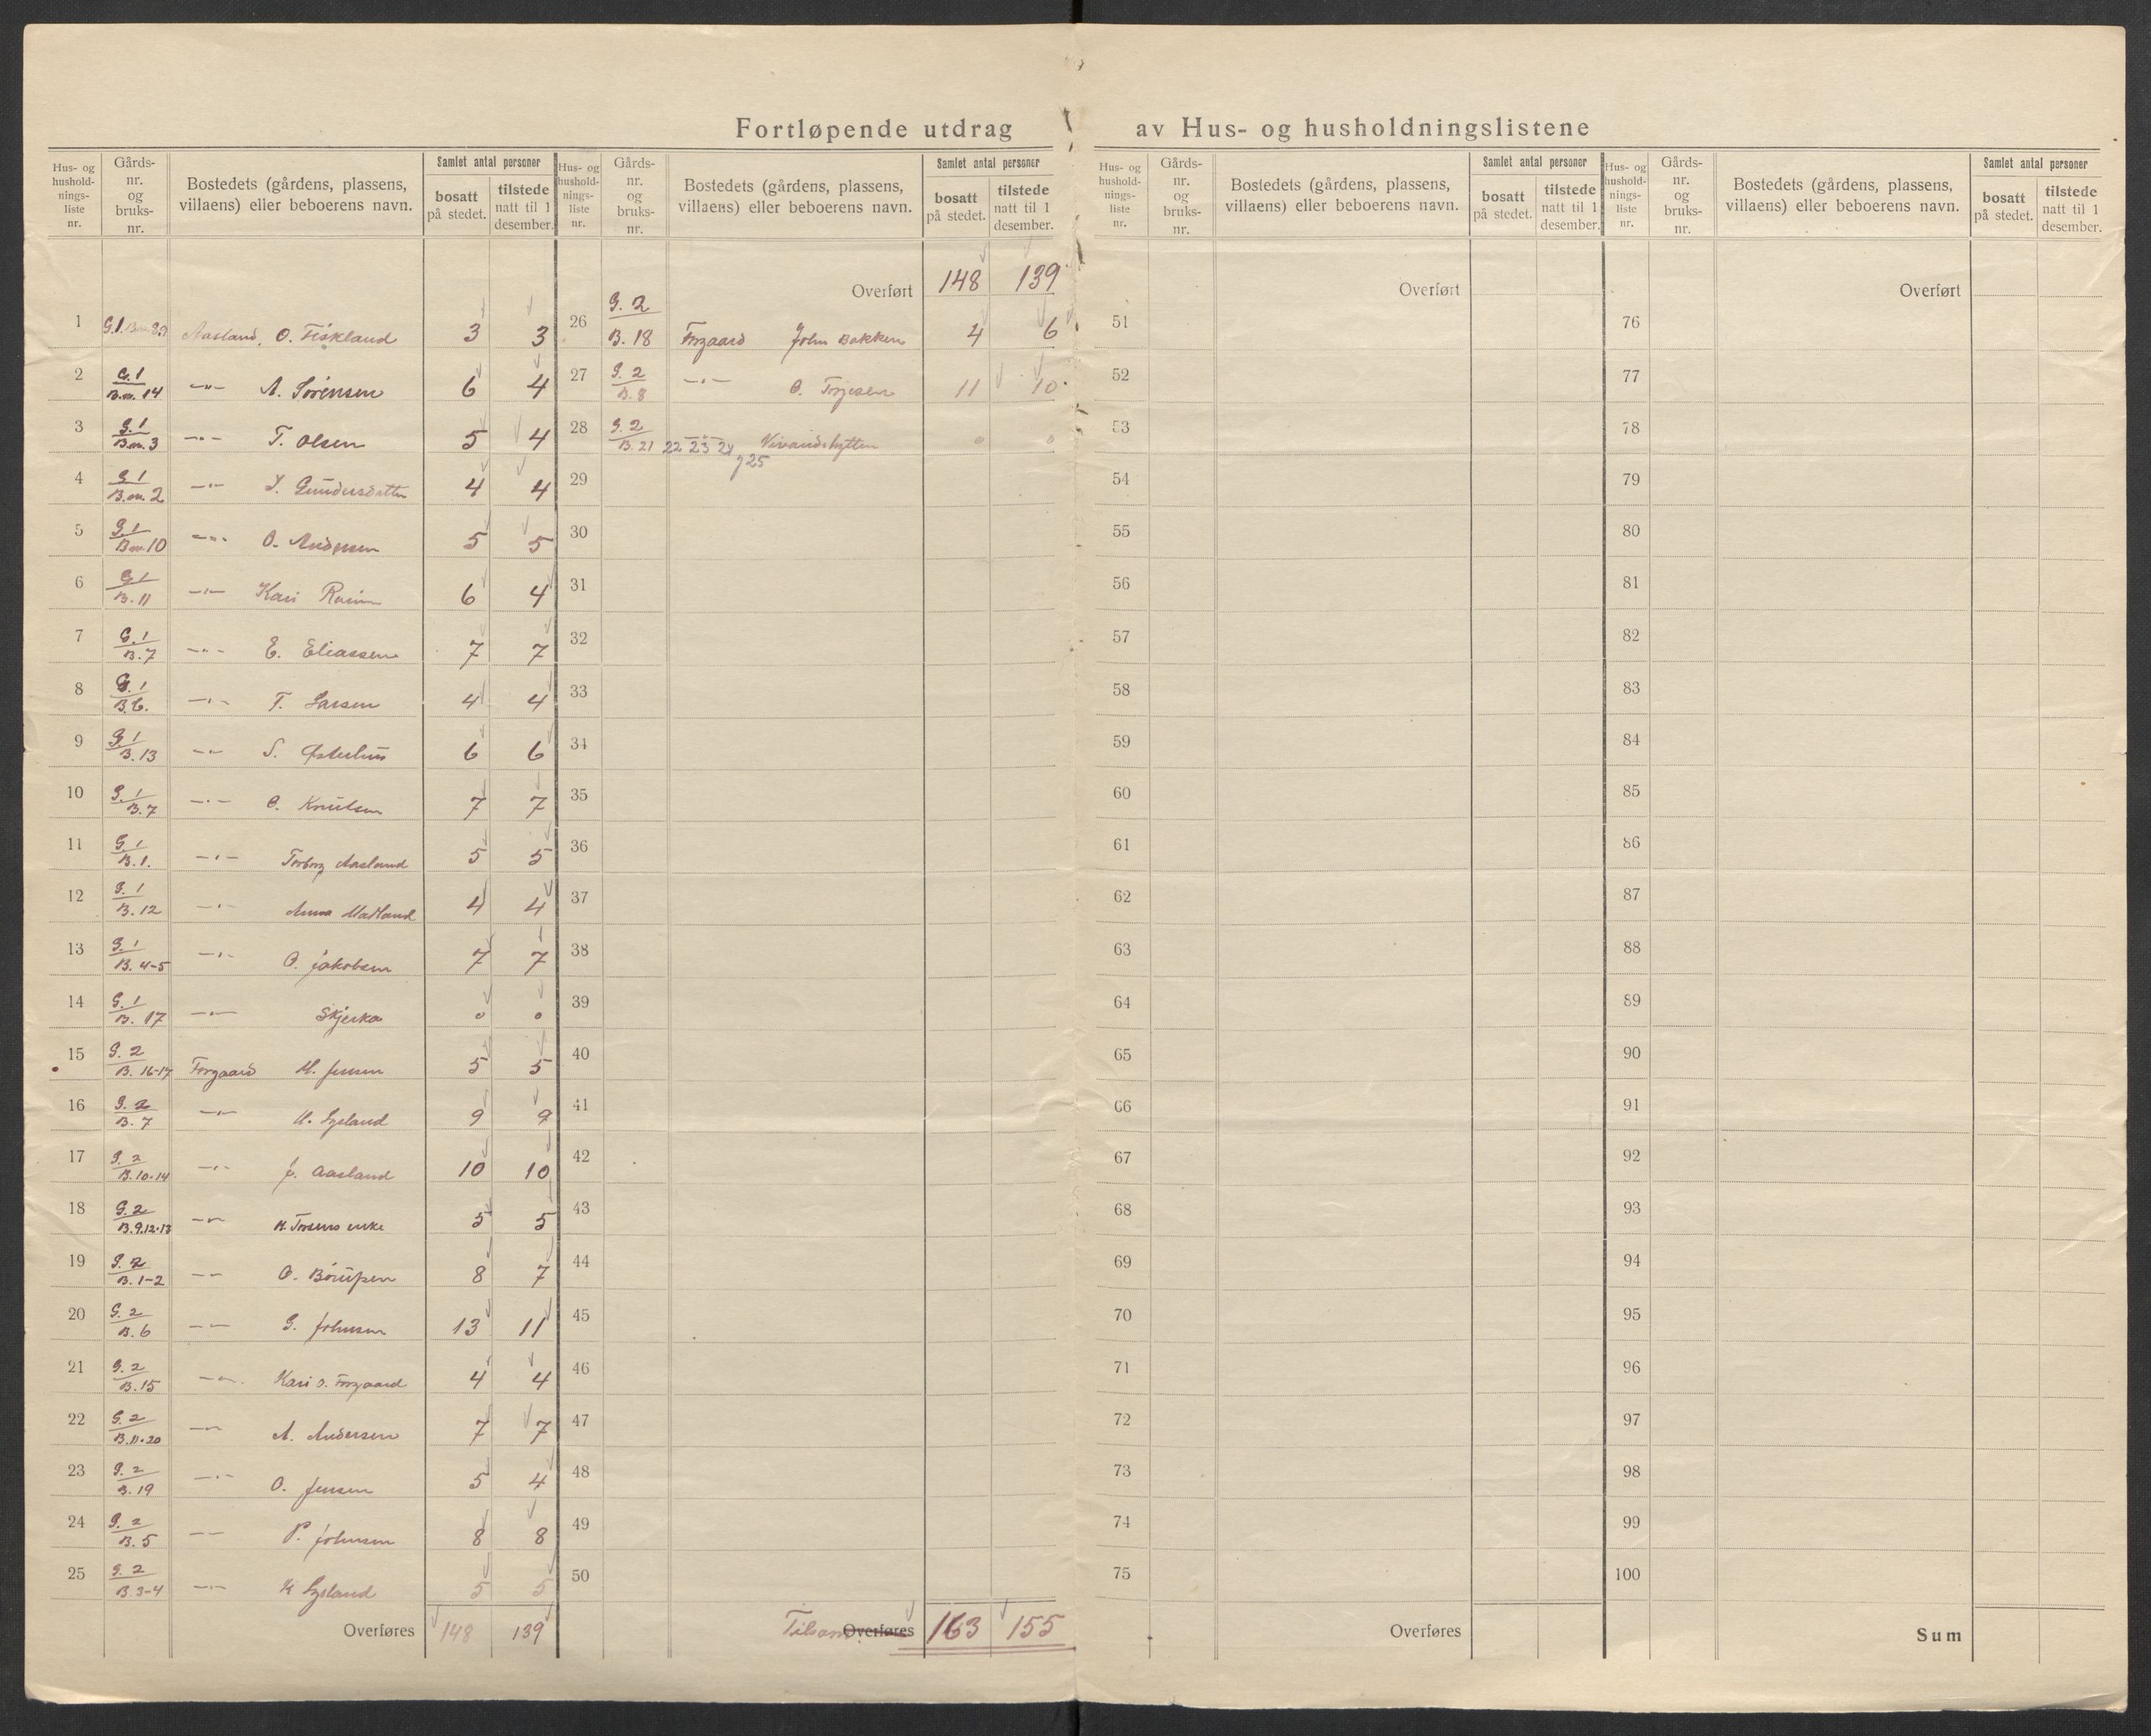 Fortløpende utdrag av Hus- og husholdningslistene
Hus- og hushold-nings-liste nr. Gårds-nr. og bruks-nr. Bostedets (gårdens, plassens, villaens) eller beboerens navn. Samlet antal personer bosatt på stedet. tilstede natt til 1 desember.
1 G.1 Aasland, O. Fiskland 3 3
2 G.1 B.nr. 14 -"- A. Sörensen 6 4
3 G.1 B.nr. 3 -"- T. Olsen 5 4
4 G.1 B.nr. 2 -"- Gundersdatter 4 4
5 G.1 B.nr. 10 -"- O. Andersen 5 5
6 G.1 B. 11 -"- Kari 6 4
7 G.1 B. 7 -"- E. Eliassen 7 7
8 G.1 B. 6. -"- T. Larsen 4 4
9 G.1 B. 13 -"- S. Østerhus 6 6
10 G.1 B. 7 -"- O. Knutsen 7 7
11 G.1 B. 1. -"- Torborg Aasland 5 5
12 G.1 B. 12 -"- Anna 4 4
13 G.1 B. 4-5 -"- O. Jakobsen 7 7
14 G.1 B. 17 -"- Skjerka 0 0
15 G. 2 B. 16-17 Forgaard M. Jensen 5 5
16 G. 2 B. 7 -"- Lyeland 9 9
17 G. 2 B. 10-14 -"- J. Aasland 10 10
18 G. 2 B. 9.12.13 -"- enke 5 5
19 G. 2 B. 1-2 -"- O. 8 7
20 G. 2 B. 6 -"- G. Johnsen 13 11
21 G. 2 B. 15 -"- Kari O. Forgaard 4 4
22 G. 2 B. 11-20 -"- A. Andersen 7 7
23 G. 2 B. 19 -"- O. Jensen 5 4
24 G. 2 B. 5 -"- P. Johnsen 8 8
25 G. 2 B. 3-4 -"- K Lyeland 5 5
Overføres 148 139
Hus- og hushold-nings-liste nr. Gårds-nr. og bruks-nr. Bostedets (gårdens, plassens, villaens) eller beboerens navn. Samlet antal personer bosatt på stedet. tilstede natt til 1 desember.
Overført 148 139
26 G. 2 B. 18 Forgaard John Bakken 4 6
27 G. 2 B. 8 -"- O. Torjesen 11 10
28 G. 2 B. 21 22 23 24 -"- 0 0
g 25
29
30
31
32
33
34
35
36
37
38
39
40
41
42
43
44
45
46
47
48
49
50
Tilsam. Overføres 163 155
Hus- og hushold-nings-liste nr. Gårds-nr. og bruks-nr. Bostedets (gårdens, plassens, villaens) eller beboerens navn. Samlet antal personer bosatt på stedet. tilstede natt til 1 desember.
Overført
51
52
53
54
55
56
57
58
59
60
61
62
63
64
65
66
67
68
69
70
71
72
73
74
75
Overføres
Hus- og hushold-nings-liste nr. Gårds-nr. og bruks-nr. Bostedets (gårdens, plassens, villaens) eller beboerens navn. Samlet antal personer bosatt på stedet. tilstede natt til 1 desember.
Overført
76
77
78
79
80
81
82
83
84
85
86
87
88
89
90
91
92
93
94
95
96
97
98
99
100
Sum